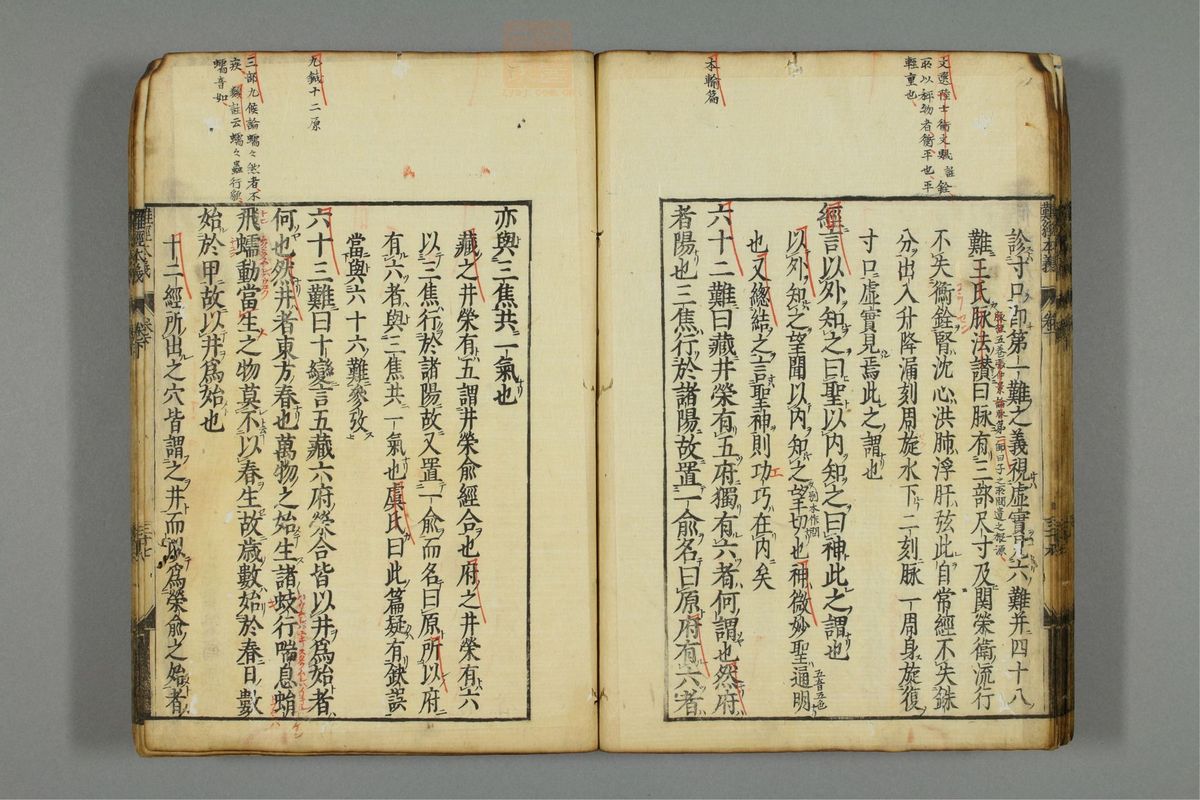 文選陸士衡文賦 註銓
所以稱物者衡平也平
輕重也
本輸篇
診寸口卽第一難之義視虛實見六難并四十八
難王氏脉法讃曰脉有三部尺寸及関榮衛流行
不失衡銓腎沈心洪肺浮肝弦此自常經不失銖
分出入升降漏刻周旋水下二刻脉一周身旋復
寸口虛實見焉此之謂也
經言以外知之曰聖以内知之曰神此之謂也
以外知之望聞以内知之望切也神微妙聖通明
五音五色
也又總結之言聖神則功巧在内矣
六十二難曰藏井榮有五府獨有六者何謂也然府
者陽也三焦行於諸陽故置一俞名曰原府有六者
亦與三焦共一氣也
藏之井榮有五謂井榮俞經合也府之井榮有六
以三焦行於諸陽故又置一俞而名曰原所以府
有六者與三焦共一氣也虞氏曰此篇疑有缺誤
當與六十六難參攷
九鍼十二原
六十三難曰十變言五藏六府榮合皆以井爲始者
何也然井者東方春也萬物之始生諸蚑行喘息蜎
飛蠕動當生之物莫不以春生故歲數始於春日數
始於甲故以井爲始也
三部九候論蠕々然者不
疾 註云蠕々蟲行貌
蠕音如
十二經所出之穴皆謂之井而以爲榮俞之始者